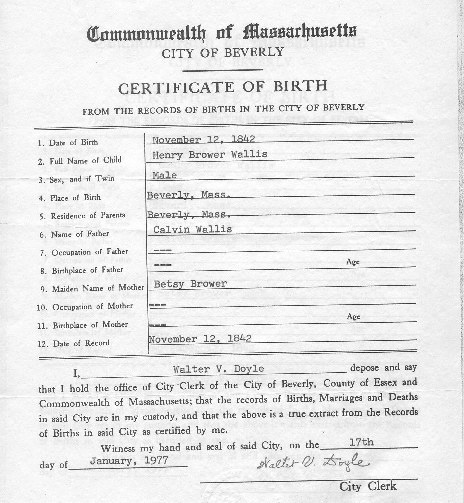 Commonwealth of Massachusetts
CITY OF BEVERLY
CERTIFICATE OF BIRTH
FROM THE RECORDS OF BIRTHS IN THE CITY OF BEVERLY
1. Date of Birth November 12, 1842
2. Full Name of Child Henry Brower Wallis
3. Sex, and if Twin Male
4. Place of Birth Beverly, Mass.
5. Residence of Parents Beverly, Mass.
6. Name of Father Calvin Wallis
7. Occupation of Father ---
8. Birthplace of Father --- Age
9. Maiden Name of Mother Betsy Brower
10. Occupation of Mother ---
11. Birthplace of Mother --- Age
12. Date of Record November 12, 1842
I, Walter V. Doyle depose and say
that I hold the office of City Clerk of the City of Beverly, County of Essex and
Commonwealth of Massachusetts; that the records of Births, Marriages and Deaths
in said City are in my custody, and that the above is a true extract from the Records
of Births in said City as certified by me.
Witness my hand and seal of said City, on the 17th
day of January, 1977 Walter V. Doyle
City Clerk